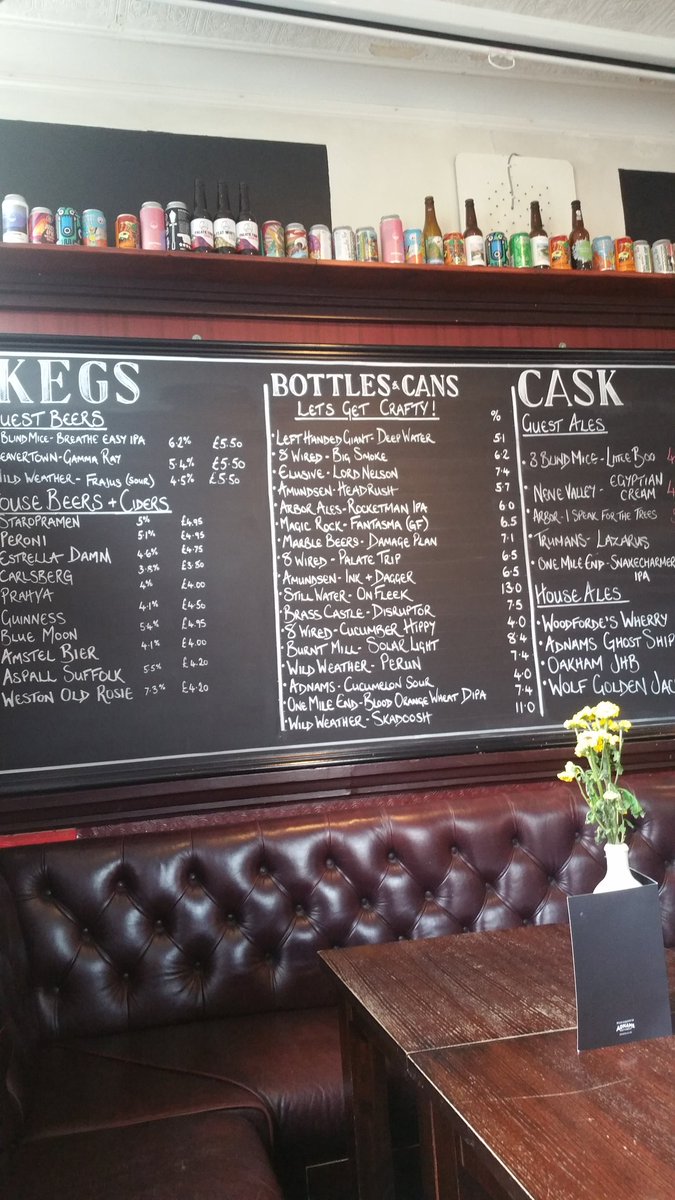 KEGS
GUEST BEERS
BLIND MICE - BREATHE EASY IPA 6.2% £5.50
EAVERTOWN - GAMMA RAY 5.4% £5.50
WILD WEATHER - FRAJUS (SOUR) 4.5% £5.50
HOUSE BEERS + CIDERS
STAROPRAMEN 5% £4.95
PERONI 5.1% £4.95
ESTRELLA DAMM 4.6% £4.75
CARLSBERG 3.8% £3.50
PRAHVA 4% £4.00
GUINNESS 4.1% £4.50
BLUE MOON 5.4% £4.95
AMSTEL BIER 4.1% £4.00
ASPALL SUFFOLK 5.5% £4.20
WESTON OLD ROSIE 7.3% £4.20
BOTTLES & CANS
LETS GET CRAFTY!
%
• LEFT HANDED GIANT - DEEP WATER 5.1
• 8 WIRED - BIG SMOKE 6.2
• ELUSIVE - LORD NELSON 7.4
• AMUNDSEN - HEADRUSH 5.7
• ARBOR ALES - ROCKETMAN IPA 6.0
• MAGIC ROCK - FANTASMA (GF) 6.5
• MARBLE BEERS - DAMAGE PLAN 7.1
• 8 WIRED - PALATE TRIP 6.5
• AMUNDSEN - INK + DAGGER 6.5
• STILL WATER - ON FLEEK 13.0
• BRASS CASTLE - DISRUPTOR 7.5
• 8 WIRED - CUCUMBER HIPPY 4.0
• BURNT MILL - SOLAR LIGHT 8.4
• WILD WEATHER - PERUN 7.4
• ADNAMS - CUCUMELON SOUR 4.0
• ONE MILE END - BLOOD ORANGE WHEAT DIPA 7.4
• WILD WEATHER - SKADOOSH 11.0
CASK
GUEST ALES
• 3 BLIND MICE - LITTLE BOO 4
• NENE VALLEY - EGYPTIAN CREAM 4
• ARBOR - I SPEAK FOR THE TREES
• TRUMANS - LAZARUS
• ONE MILE END - SNAKECHARMER IPA
HOUSE ALES
• WOODFORDE'S WHERRY
• ADNAMS GHOST SHIP
• OAKHAM JHB
• WOLF GOLDEN JAC
ADNAMS